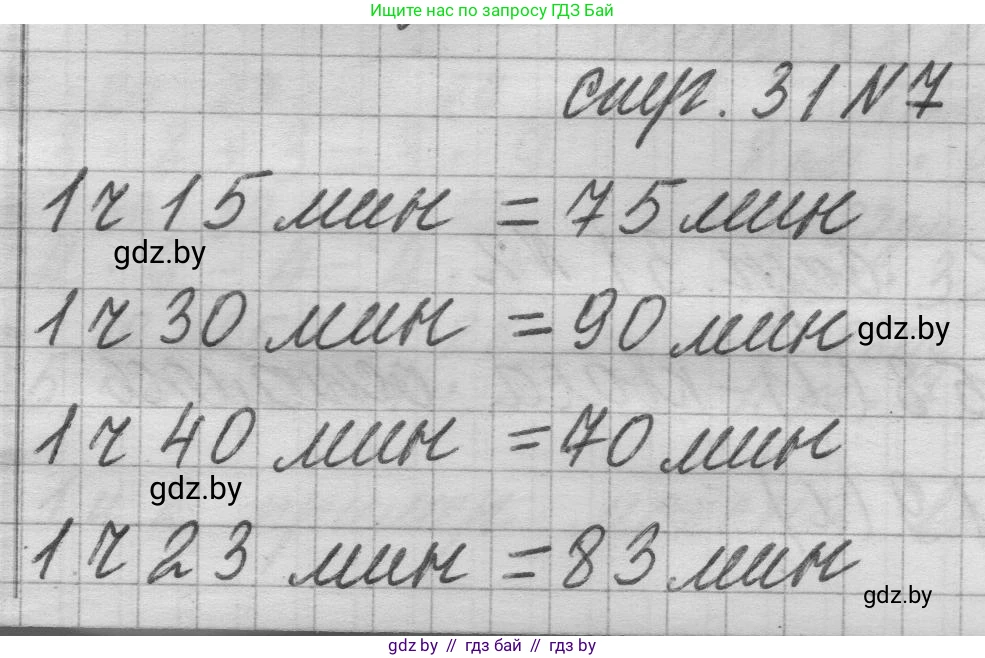 Ищите нас по запросу ГДЗ Бай
стр. 31 N 7
1 ч 15 мин = 75 мин
gdz.by
1 ч 30 мин = 90 мин
gdz.by
1 ч 40 мин = 70 мин
gdz.by
1 ч 23 мин = 83 мин
gdz.by
gdz by // гдз бай // гдз by